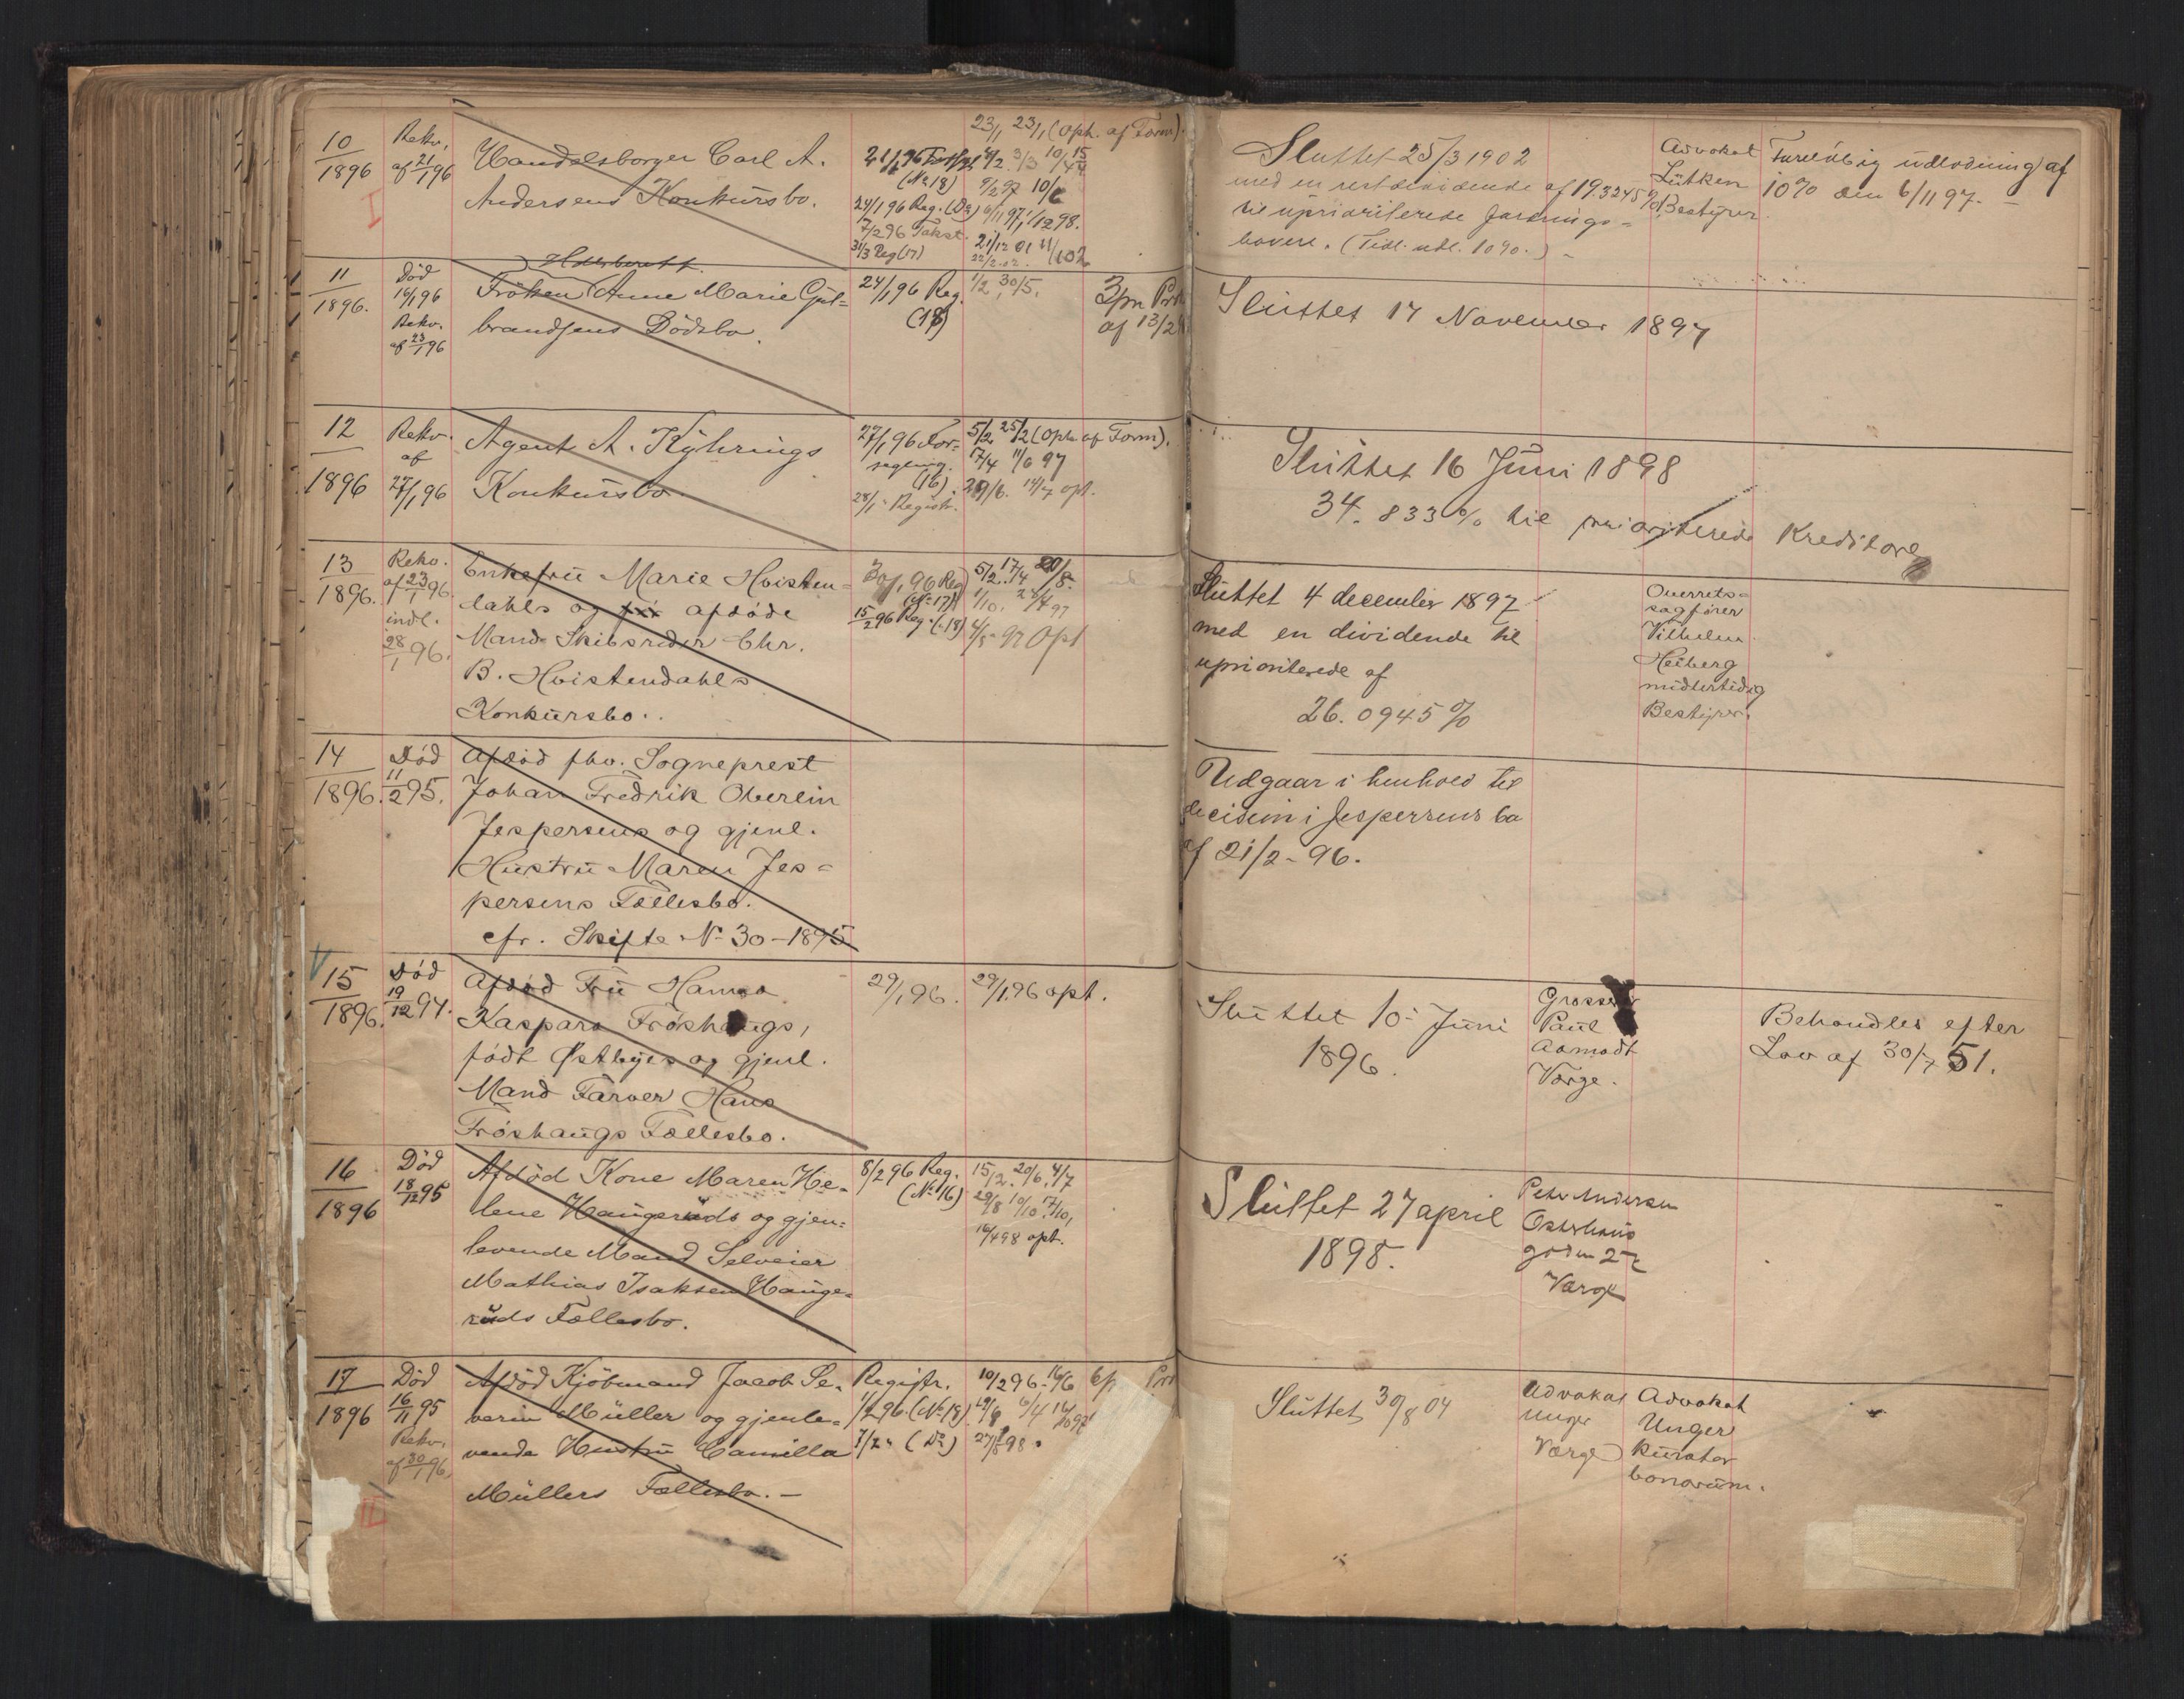 10
1896
Rekv.
af 21/1 96
I
Handelsborger Carl A.
Andersens Konkursbo.
23/1, 23/1 (Oph. af Form).
21/1 96
(No 18)
9/2 97 10/6
24/1 96 Reg. (Do) 6/11 97, 1/12 98.
7/2 96 Takst. 21/12 01 11/1 02
31/3 Reg (17) 22/2 02.
Sluttet 25/3 1902
med en restdividende af 19.3245 %
til uprioriterede fordrings-
havere. (Tidl. udl. 10%.) -
Advokat
Lütken
Bestyrer.
Foreløbig udlodning af
10% den 6/11 97. -
11
1896.
Död
16/1 96
Rekv.
af 23/1 96
Fröken Anne Marie Gul-
brandsens Dödsbo.
24/1 96 Reg.
(18)
1/2, 30/5.
af 13/2
Sluttet 17 November 1897
12
1896
Rekv.
af
27/1 96
Agent A. Kyhrings
Konkursbo.
27/1 96 For-
segling.
(16).
28/1 - Registr.
5/2 25/2 (Oph. af Form).
17/4 11/6 97
29/6. 14/7 opt.
Sluttet 16 Juni 1898
34.833% til prioriterede Kreditorer
13
1896.
Rekv.
af 23/1 96
indl.
28/1 96.
Enkefru Marie Hvisten-
dahls og afdøde
Mand Skibsreder Chr.
B. Hvistendahls
Konkursbo.
30/1 96 Reg
(No 17)
15/2 96 Reg. (18)
5/2. 17/4 20/8.
1/10. 28/4 97
4/8 - 97 Opt
Sluttet 4 december 1897
med en dividende til
uprioriterede af
26.0945 %
Overrets-
sagfører
Vilhelm
Heiberg
midlertidig
Bestyrer.
14
1896.
Död
11/2 95.
Afdöd fhv. Sogneprest
Johan Fredrik Oberlin
Jespersens og gjenl.
Hustru Maren Jes-
persens Fællesbo.
cfr. Skifte No 30 - 1895
Udgaar i henhold til
decision i Jespersens bo
af 21/2 - 96.
15
1896.
Död
19/12 94.
Afdöd Fru Hanna
Kaspara Fröshaugs,
födt Østbyes og gjenl.
Mand Farver Hans
Fröshaugs Fællesbo.
29/1 96.
29/1 96 opt.
Sluttet 10 Juni
1896.
Grosserer
Paul
Aamodt
Værge.
Behandles efter
Lov af 30/7 51.
16
1896
Död
18/12 95
Afdöd Kone Maren He-
lene Haugeruds og gjen-
levende Mand Selveier
Mathias Isaksen Hauge-
ruds Fællesbo.
8/2 96 Reg.
(No 16)
15/2. 20/6. 4/7
29/8 10/10. 17/10,
16/4 98 opt.
Sluttet 27 april
1898.
Peter Andersen
Osterhaus
gaden 27
Værge
17
1896
Död
16/11 95
Rekv.
af 30/1 96
II
Afdöd Kjöbmand Jacob Se-
verin Müllers og gjenle-
vende Hustru Camilla
Müllers Fællesbo. -
Registr.
1/2 96. (No 18)
7/2 - (Do)
10/2 96 - 16/6
27/8 98.
Sluttet 30/8 04
Advokat
Unger
Værge
Advokat
Unger
Kurator
bonorum.